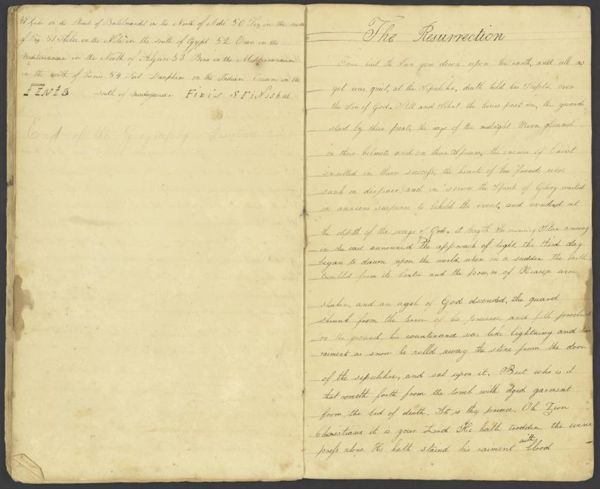 in the Strait of Babelmandel in the North of 50
51 in the Nile in the South of Egypt 52 in the
Mediterranean in the North of 53 in the Mediterranean
in the North of 54 Fort Dauphin in the Indian Ocean in the
FINIS South of Madagascar Finis
End of the Geography
The Resurrection
you down upon the earth, and all as
yet was quiet, at the Sepulchre, death held his over
the Son of God. Still and silent the hours past on, the guards
stood by their posts, the rays of the midnight Moon gleamed
on their helmets and on their Spears, the enemies of Christ
exulted in their success, the hearts of his friends were
sunk in despair and in sorrow the Spirits of Glory waited
in anxious suspense to behold the event, and wondered at
the depth of the ways of God. at length the morning Star arising
in the east announced the approach of light the third day
began to dawn upon the world when on a sudden the Earth
trembled from its Centre and the powers of Heaven were
shaken, and an angel of God descended, the guard
shrunk from the terror of his presence and fell prostrate
on the ground, his countenance was like lightning and his
raiment as snow he rolld away the stone from the door
of the sepulchre, and sat upon it. But who is it
that cometh forth from the tomb with dyed garment
from the bed of death. It is thy prince. Oh Zion
Christians it is your Lord He hath trodden the wine
press alone He hath staind his raiment with blood